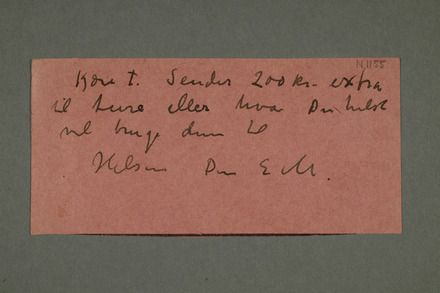 N 1155
Kære t. Sender 200 kr. extra
til huse eller hva Du helst
vil bruge dem til
Hilsen Din E M.